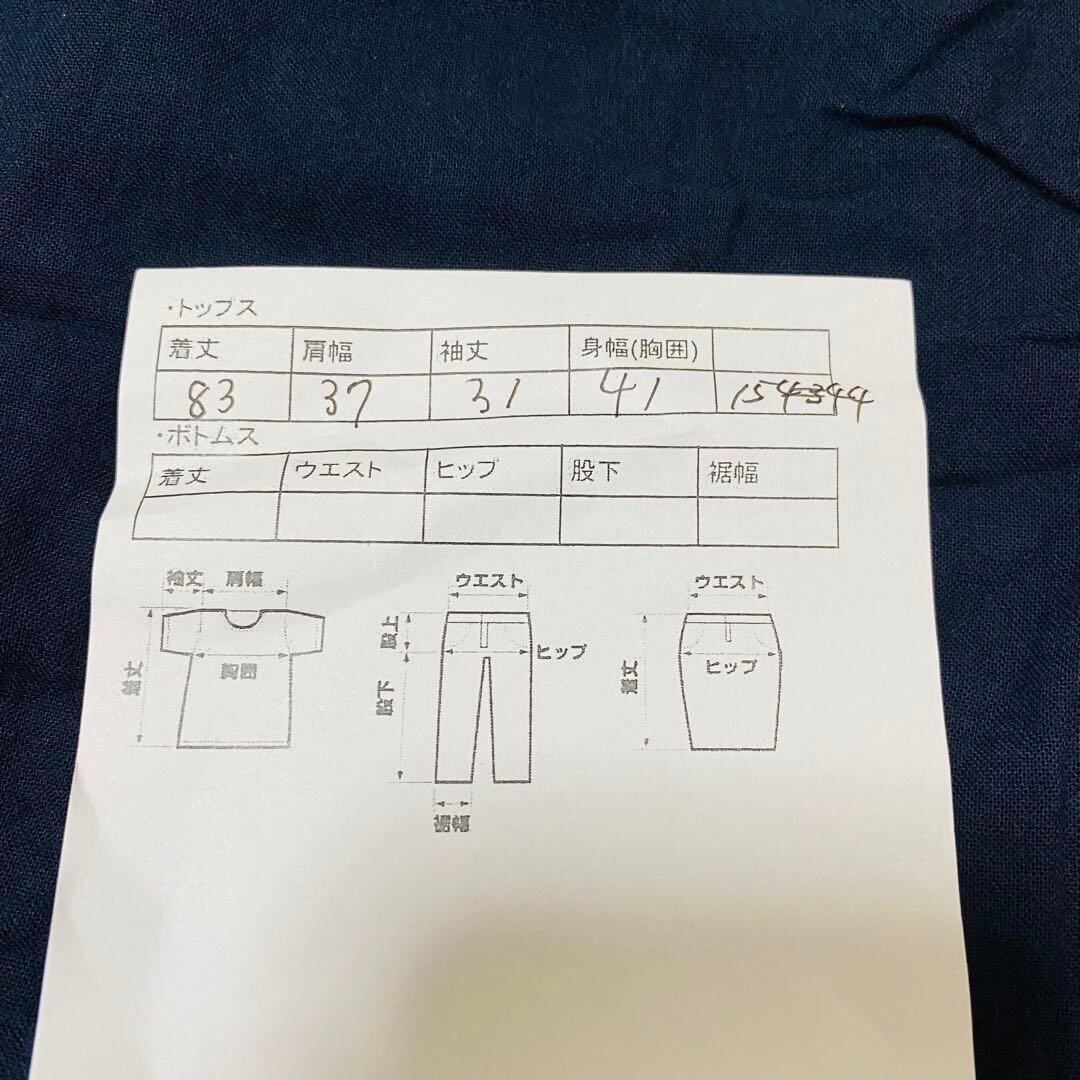 ・トップス
着丈 肩幅 袖丈 身幅(胸囲)
83 37 31 41
・ボトムス
着丈 ウエスト ヒップ 股下 裾幅
袖丈 肩幅
胸囲
着丈
ウエスト
股上
ヒップ
股下
裾幅
ウエスト
着丈
ヒップ